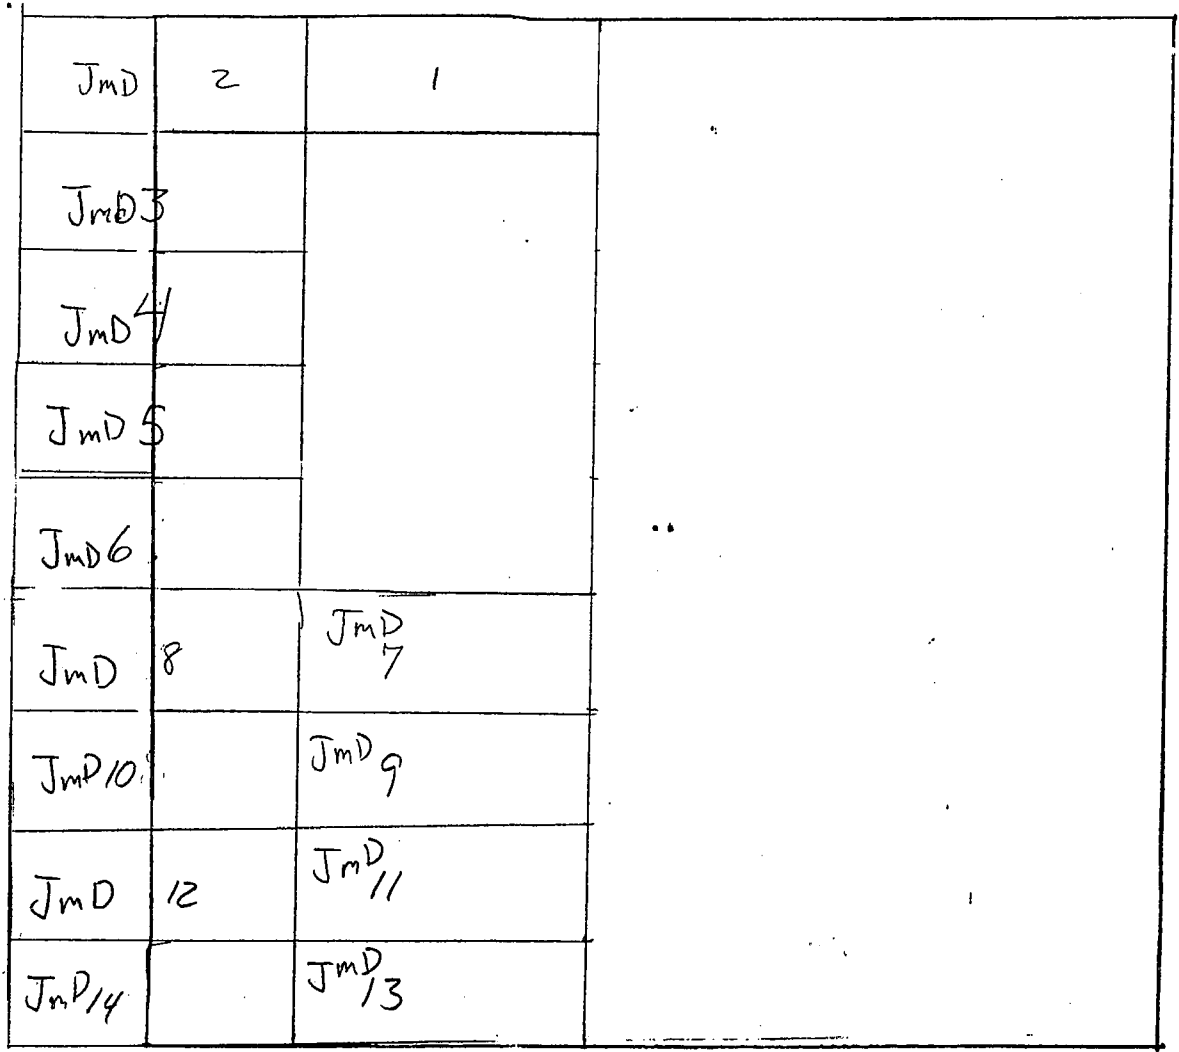 JmD 2 1
JmD 3
JmD 4
JmD 5
JmD 6
JmD 8 JmD
7
JmD 10 JmD 9
JmD 12 JmD 11
JmD 14 JmD 13